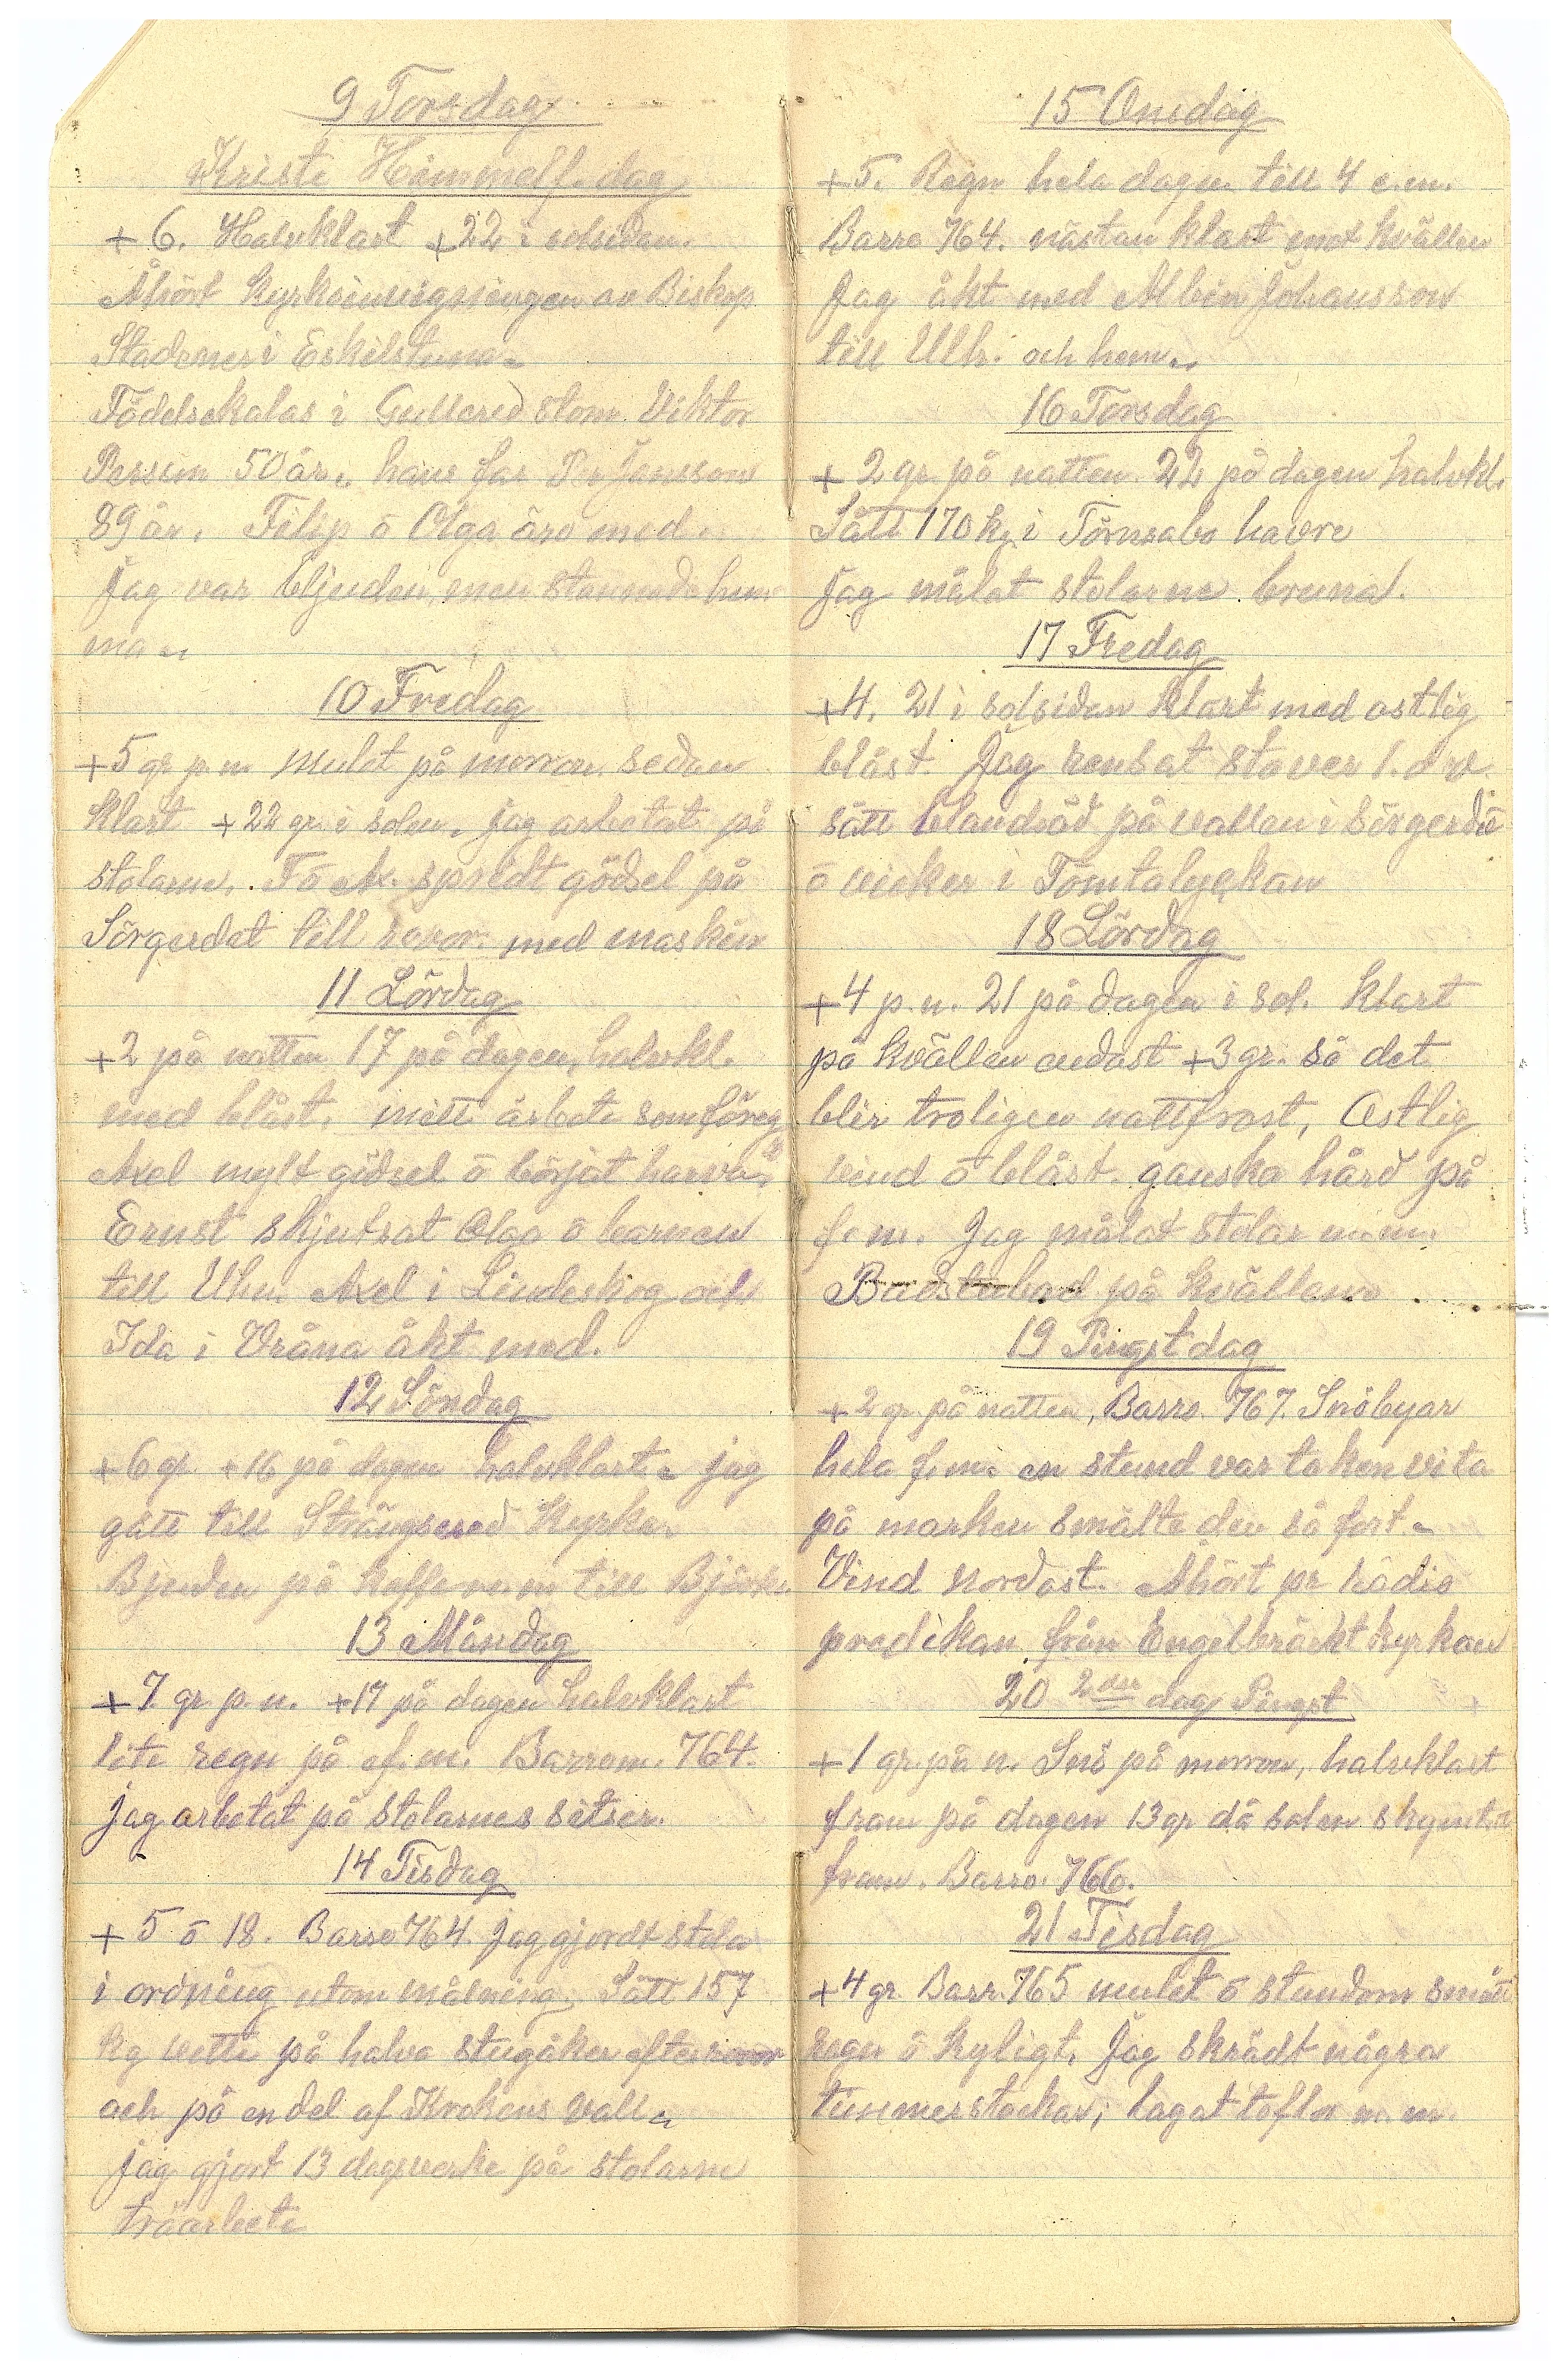 9 Torsdag
Kristi Himmelf. dag
+ 6. Halvklart +22 i solsidan.
Åhört Kyrkoinvigningen av Biskop
i Eskilstuna.
Födelsekalas i Gullered stom Viktor
Persson 50 år. hans far Per Jansson
89 år. Filip o Olga äro med.
Jag var bljuden, men stannade hem
ma.
10 Fredag
+5 gr p. n. Mulet på morron. sedan
klart +22 gr. i solen. jag arbetat på
stolarne. F o Ax. spridt gödsel på
Sörgerdet till rovor. med maskin
11 Lördag
+2 på natten 17 på dagen, halvkl.
med blåst. mitt arbete som föreg.
Axel mylt gödsel o börjat harva.
Ernst skjutsat Olga o barnen
till Uhn. Axel i Lindeskog och
Ida i Vråna åkt med.
12 Söndag
+6 gr. +16 på dagen halvklart. jag
gått till Strängsered Kyrka.
Bjuden på kaffe m. m till Björk.
13 Måndag
+7. gr. p. n. +17 på dagen halvklart
lite regn på ef. m. Barrom. 764.
jag arbetat på stolarnes sitser.
14 Tisdag
+5 o 18. Barro 764. jag gjordt stola
i ordning utom målning. Sått 157
kg vette på halva stugåker efter rovor
och på en del af Krokens vall.
jag gjort 13 dagsverke på stolarne
träarbete
15 Onsdag
+5. Regn hela dagen till 4 e.m.
Barro 764. nästan klart emot kvällen
Jag åkt med Albin Johansson
till Ulh. och hem.
16 Torsdag
+ 2 gr. på natten. 22 på dagen halvkl.
Sått 170 kg i Törnsabo havre
jag målat stolarne bruna.
17 Fredag
+4. 21 i solsidan klart med ostlig
blåst. Jag rensat staver 1. d v.
sått blandsäd på vallen i Sörgerde
o vicker i Tomtalyckan
18 Lördag
+4 p. n. 21 på dagen i sol. klart
på kvällen endast +3 gr. så det
blir troligen nattfrost, Ostlig
vind o blåst. ganska hård på
f. m. Jag målat stolar m.m.
Badstubad på kvällen
19 Pingstdag
+2 gr. på natten, Barro. 767. Snöbyar
hela f.m. en stund var taken vita
på marken smälte den så fort.
Vind nordost. Åhört pr radio
predikan från Engelbräckt kyrkan
20 2dra dag Pingst
+1 gr. på n. Snö på morron, halvklart
fram på dagen 13 gr då solen skymtat
fram. Barro. 766.
21 Tisdag
+4 gr. Barr. 765 mulet o stundom smått
regn o kyligt. Jag skrädt några
timmerstockar, lagat toflor m. m.